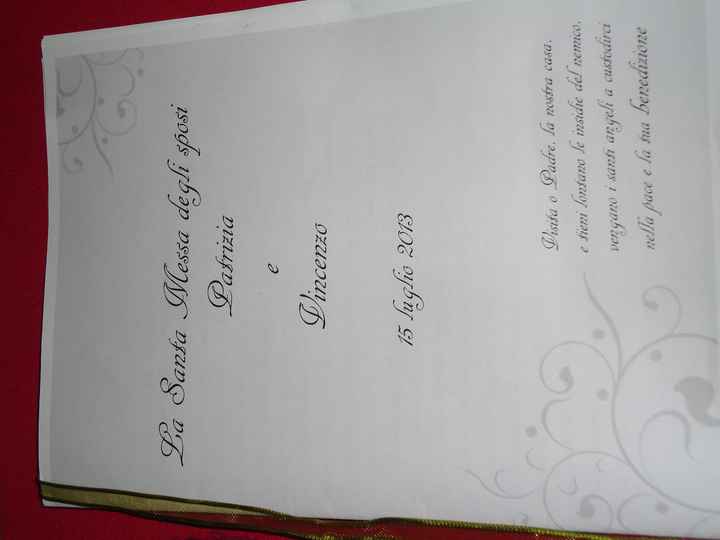 La Santa Messa degli sposi
Patrizia
e
Vincenzo
15 luglio 2013
Visita o Padre, la nostra casa,
e tieni lontano le insidie del nemico,
vengano i santi angeli a custodirci
nella pace e la tua benedizione